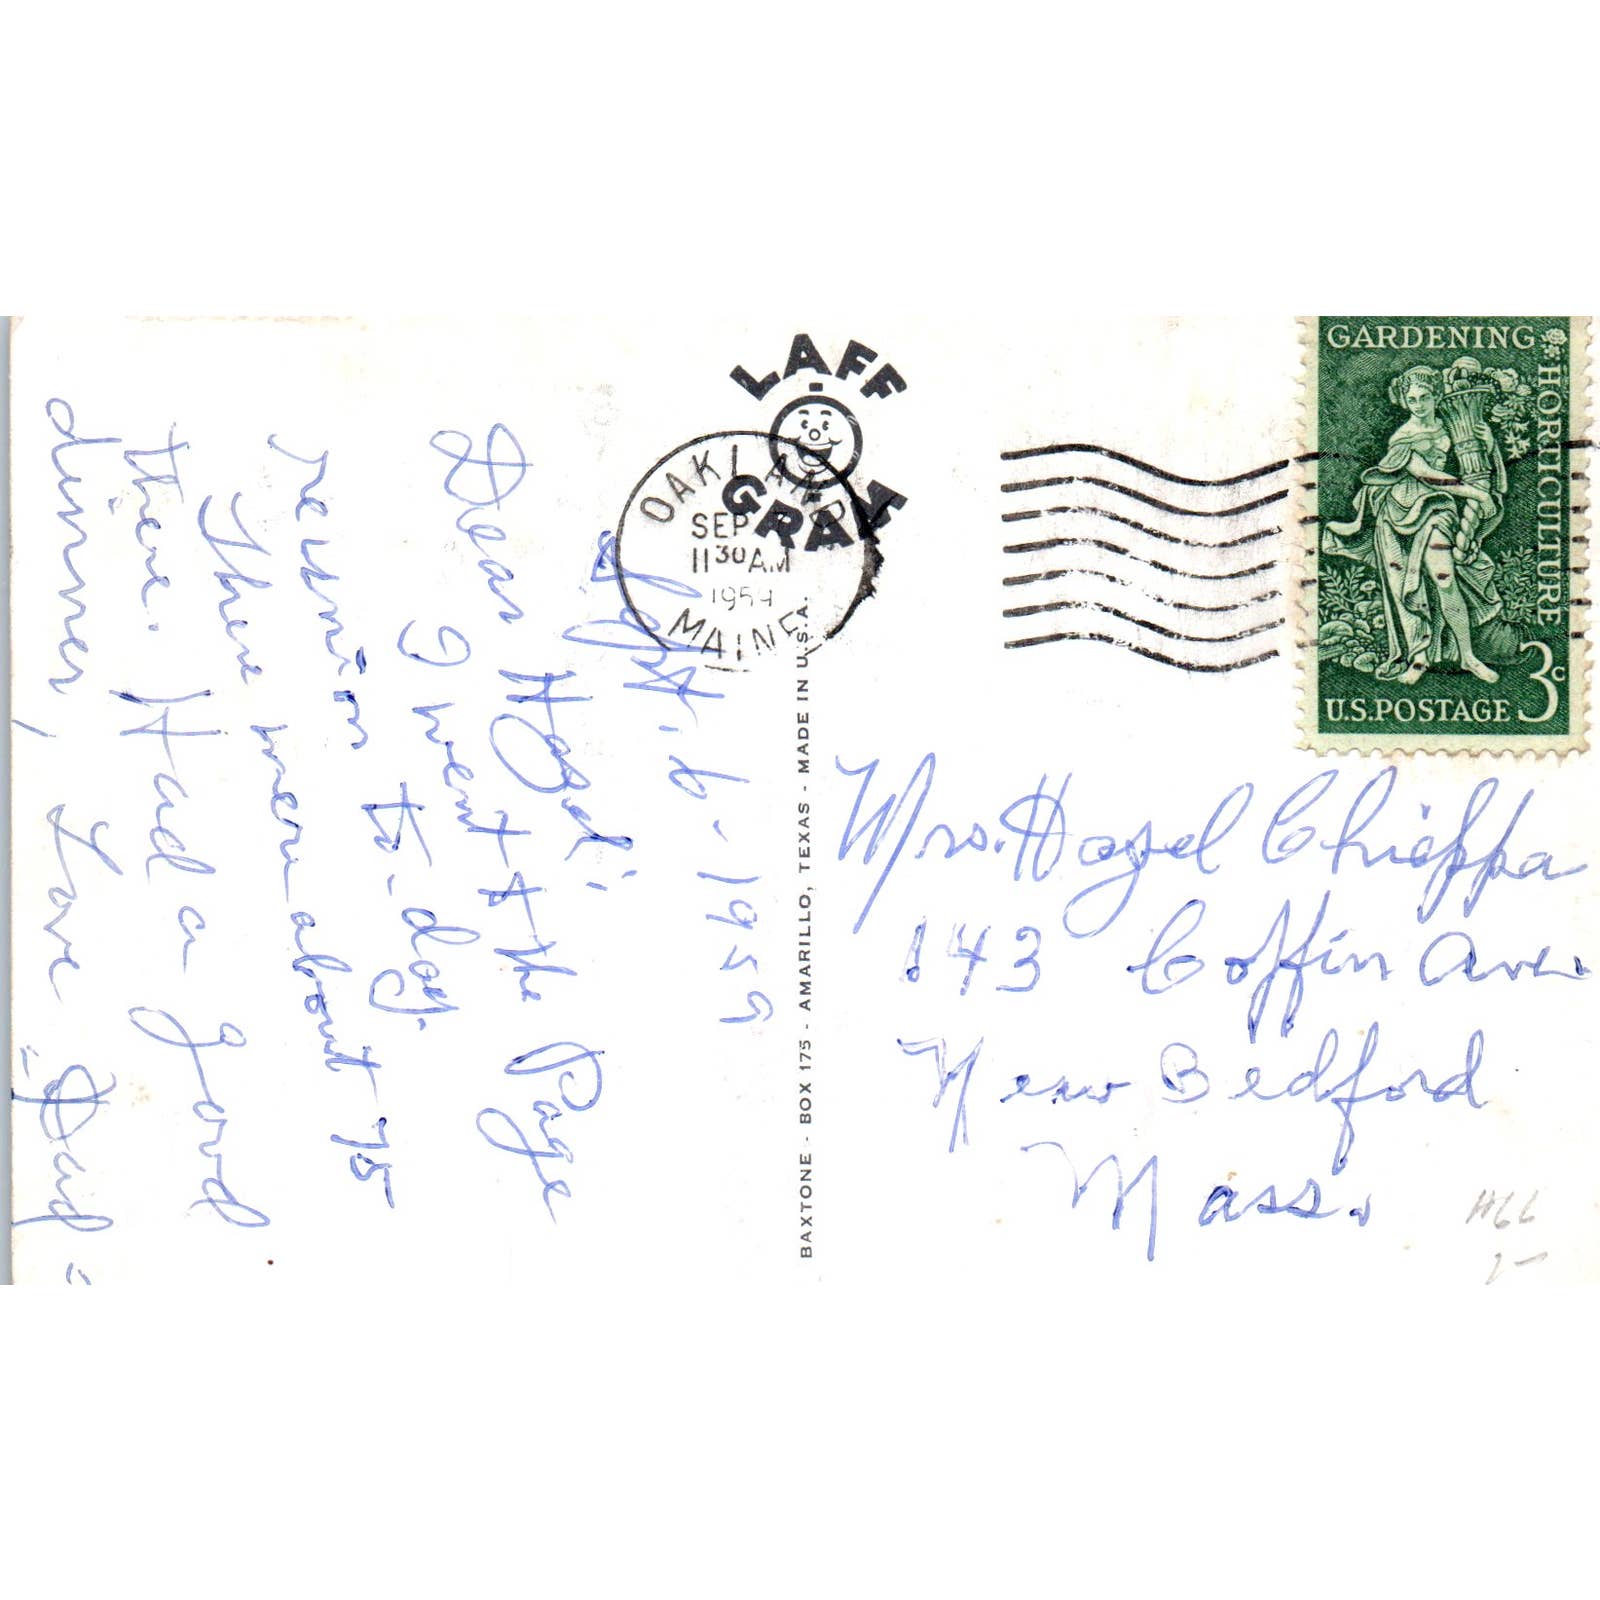 Sept. 6 - 1959
Dear Hazel;
I went to the Page
reunion to-day.
There were about 75
there. Had a good
dinner, Love Dad
LAFF
GRAM
OAKLAND
SEP
11 30 AM
1959
MAINE
BAXTONE - BOX 175 - AMARILLO, TEXAS - MADE IN U.S.A.
GARDENING
HORTICULTURE
3c
U.S.POSTAGE
Mrs. Hazel Chieppa
143 Coffin Ave.
New Bedford
Mass.